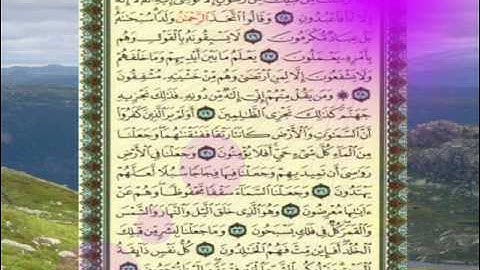 إِلَّا أَنَا۠ فَاعْبُدُونِ ٢٥ وَقَالُوا اتَّخَذَ الرَّحْمَٰنُ وَلَدًا سُبْحَانَهُ
بَلْ عِبَادٌ مُّكْرَمُونَ ٢٦ لَا يَسْبِقُونَهُ بِالْقَوْلِ وَهُم
بِأَمْرِهِ يَعْمَلُونَ ٢٧ يَعْلَمُ مَا بَيْنَ أَيْدِيهِمْ وَمَا خَلْفَهُمْ
وَلَا يَشْفَعُونَ إِلَّا لِمَنِ ارْتَضَىٰ وَهُم مِّنْ خَشْيَتِهِ مُشْفِقُونَ
٢٨ ۞ وَمَن يَقُلْ مِنْهُمْ إِنِّي إِلَٰهٌ مِّن دُونِهِ فَذَٰلِكَ نَجْزِيهِ
جَهَنَّمَ كَذَٰلِكَ نَجْزِي الظَّالِمِينَ ٢٩ أَوَلَمْ يَرَ الَّذِينَ كَفَرُوا
أَنَّ السَّمَاوَاتِ وَالْأَرْضَ كَانَتَا رَتْقًا فَفَتَقْنَاهُمَا وَجَعَلْنَا
مِنَ الْمَاءِ كُلَّ شَيْءٍ حَيٍّ أَفَلَا يُؤْمِنُونَ ٣٠ وَجَعَلْنَا فِي الْأَرْضِ
رَوَاسِيَ أَن تَمِيدَ بِهِمْ وَجَعَلْنَا فِيهَا فِجَاجًا سُبُلًا لَّعَلَّهُمْ
يَهْتَدُونَ ٣١ وَجَعَلْنَا السَّمَاءَ سَقْفًا مَّحْفُوظًا وَهُمْ عَنْ
آيَاتِهَا مُعْرِضُونَ ٣٢ وَهُوَ الَّذِي خَلَقَ اللَّيْلَ وَالنَّهَارَ وَالشَّمْسَ
وَالْقَمَرَ كُلٌّ فِي فَلَكٍ يَسْبَحُونَ ٣٣ وَمَا جَعَلْنَا لِبَشَرٍ مِّن قَبْلِكَ
الْخُلْدَ أَفَإِن مِّتَّ فَهُمُ الْخَالِدُونَ ٣٤ كُلُّ نَفْسٍ ذَائِقَةُ